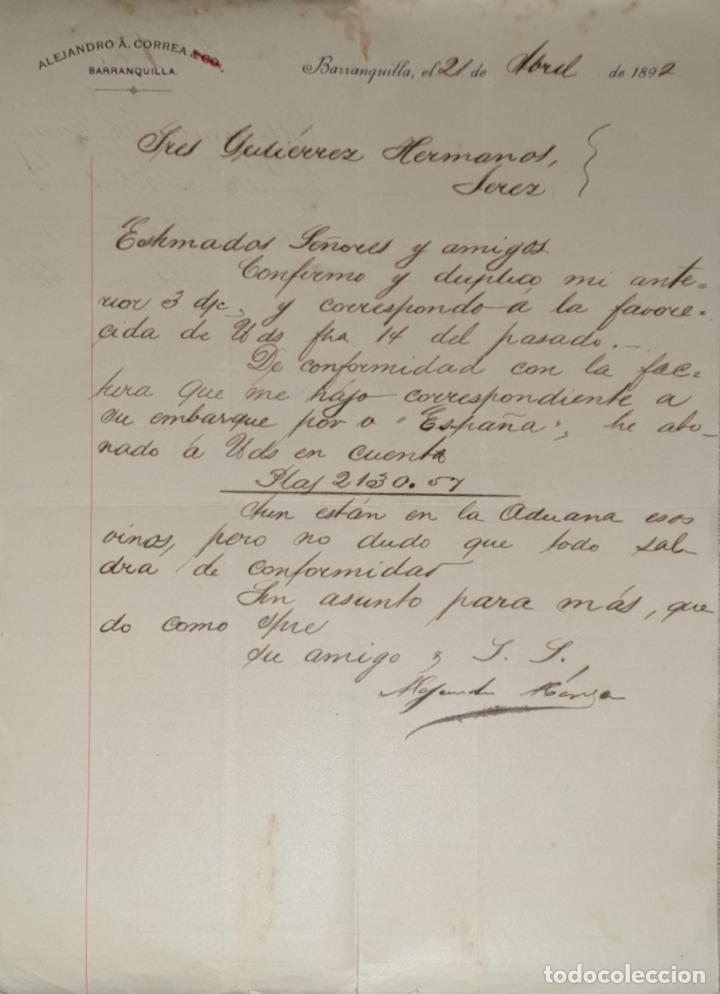 ALEJANDRO A. CORREA & CO,
BARRANQUILLA.
Barranquilla, el 21 de Abril de 1892
Sres Gutiérrez Hermanos,
Jerez
Estimados Señores y amigos
Confirmo y duplico mi ante-
rior 3 dje, y correspondo a la favore-
cida de Uds fha 14 del pasado.-
De conformidad con la fac-
tura que me hajo correspondiente a
su embarque por v "España", he abo-
nado á Uds en cuenta
Ptas 2130.57
Aun están en la Aduana esos
vinos, pero no dudo que todo sal-
dra de conformidad
Sin asunto para más, que
do como spre
su amigo y S. S.,
Alejandro
todocoleccion